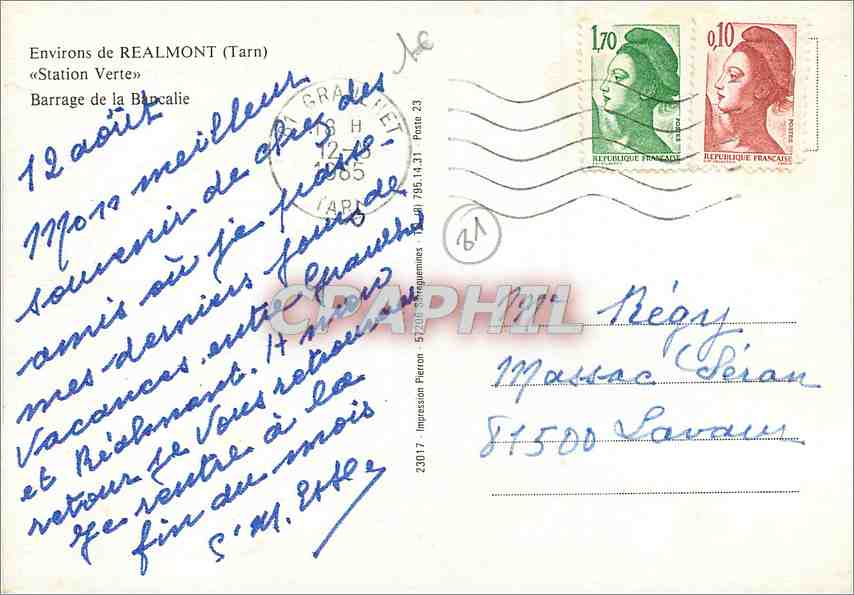 Environs de REALMONT (Tarn)
«Station Verte»
Barrage de la Bancalie
12 août
Mon meilleur
souvenir de chez des
amis où je passe
mes derniers jours de
vacances entre Graulhet
et Réalmont. A mon
retour je vous retrouverai
Je rentre à la
fin du mois
S. M.
1€
81 GRAULHET
16 H
12-8
1985
TARN
23017 - Impression Pierron - 57206 Sarreguemines - Tél. (8) 795.14.31 Poste 23
1,70
POSTES
REPUBLIQUE FRANÇAISE
0,10
POSTES
REPUBLIQUE FRANÇAISE
81
CPAPHIL
Mme Régy
Massac Séran
81500 Lavaur